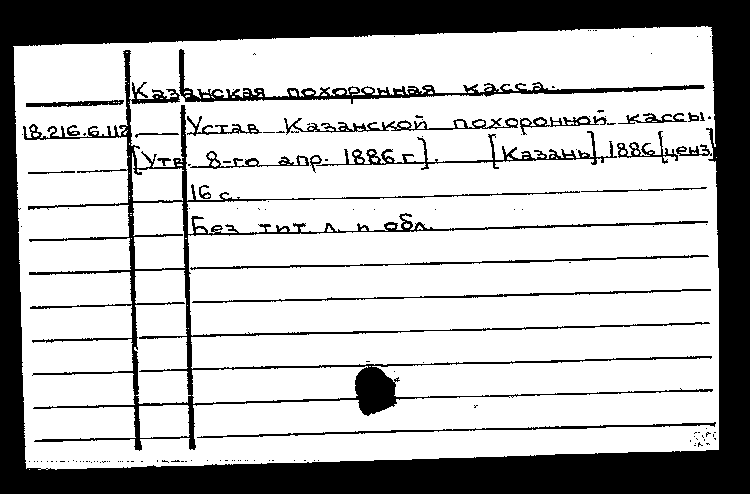 Казанская похоронная касса.
18.216.6.112. Устав Казанской похоронной кассы.
[Утв. 8-го апр. 1886 г.]. [Казань], 1886 [ценз]
16 с.
Без тит. л. и обл.